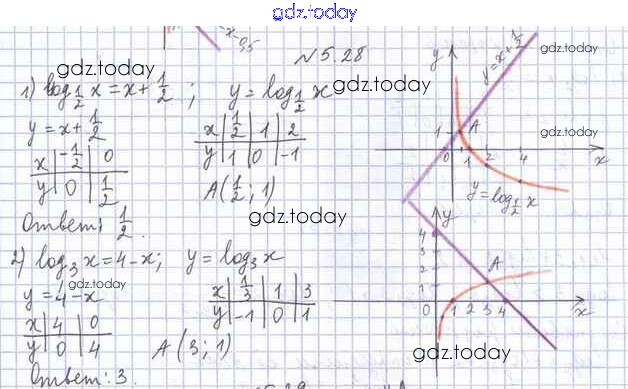 gdz.today
x-0,5
N 5.28
gdz.today
1) log_{1/2} x = x + 1/2 ; y = log_{1/2} x
gdz.today
y = x + 1/2
x | -1/2 | 0
y | 0 | 1/2
x | 1/2 | 1 | 2
y | 1 | 0 | -1
A (1/2 ; 1)
Ответ: 1/2.
gdz.today
2) log_3 x = 4 - x; y = log_3 x
gdz.today
y = 4 - x
x | 4 | 0
y | 0 | 4
x | 1/3 | 1 | 3
y | -1 | 0 | 1
A (3; 1)
Ответ: 3.
y
y = x + 1/2
gdz.today
1
A
gdz.today
0 1 2 4 x
y = log_{1/2} x
y
4
3
2
1
A
0 1 2 3 4 x
gdz.today
gdz.today